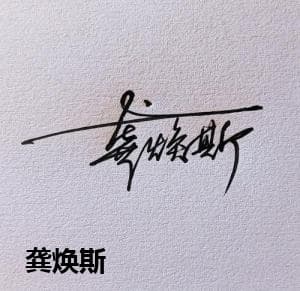 龚焕斯
龚焕斯